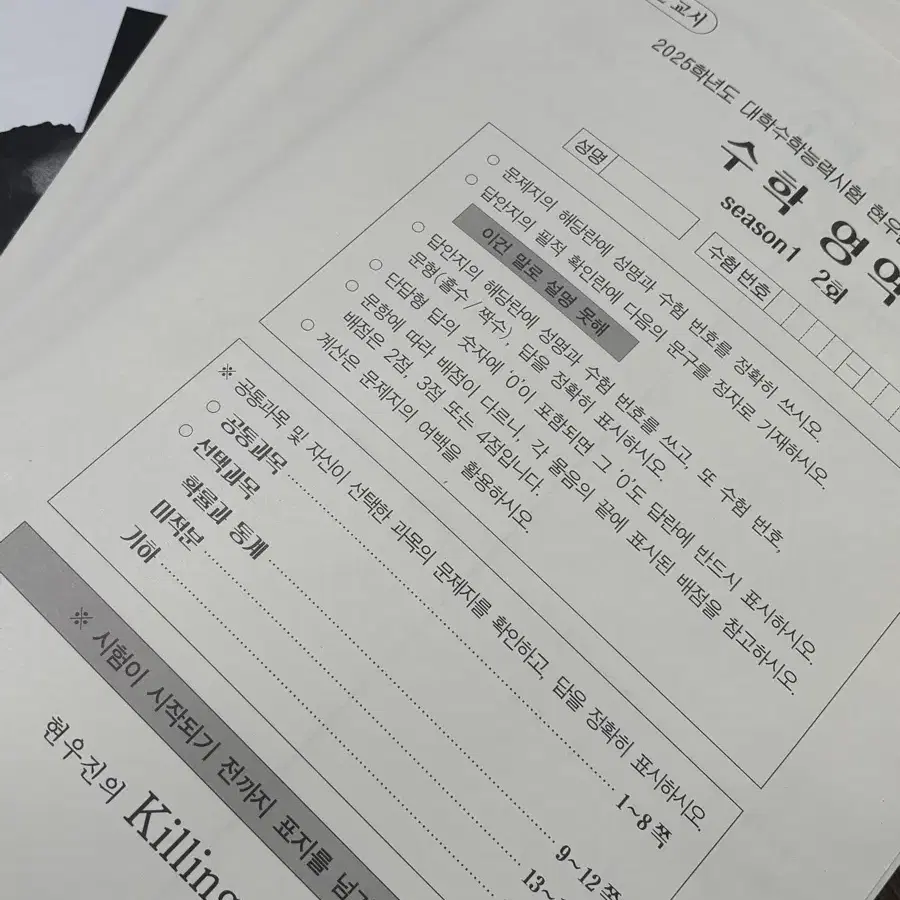 교시
2025학년도 대학수학능력시험 현우
수학 영역
season1 2회
성명
수험 번호
○ 문제지의 해당란에 성명과 수험 번호를 정확히 쓰시오.
○ 답안지의 필적 확인란에 다음의 문구를 정자로 기재하시오.
이건 말로 설명 못해
○ 답안지의 해당란에 성명과 수험 번호를 쓰고, 또 수험 번호,
문형(홀수/짝수), 답을 정확히 표시하시오.
○ 단답형 답의 숫자에 '0'이 포함되면 그 '0'도 답란에 반드시 표시하시오.
○ 문항에 따라 배점이 다르니, 각 물음의 끝에 표시된 배점을 참고하시오.
배점은 2점, 3점 또는 4점입니다.
○ 계산은 문제지의 여백을 활용하시오.
※ 공통과목 및 자신이 선택한 과목의 문제지를 확인하고, 답을 정확히 표시하시오.
○ 공통과목 1~8쪽
○ 선택과목
확률과 통계 9~12쪽
미적분 13~
기하
※ 시험이 시작되기 전까지 표지를 넘기
현우진의 Killing